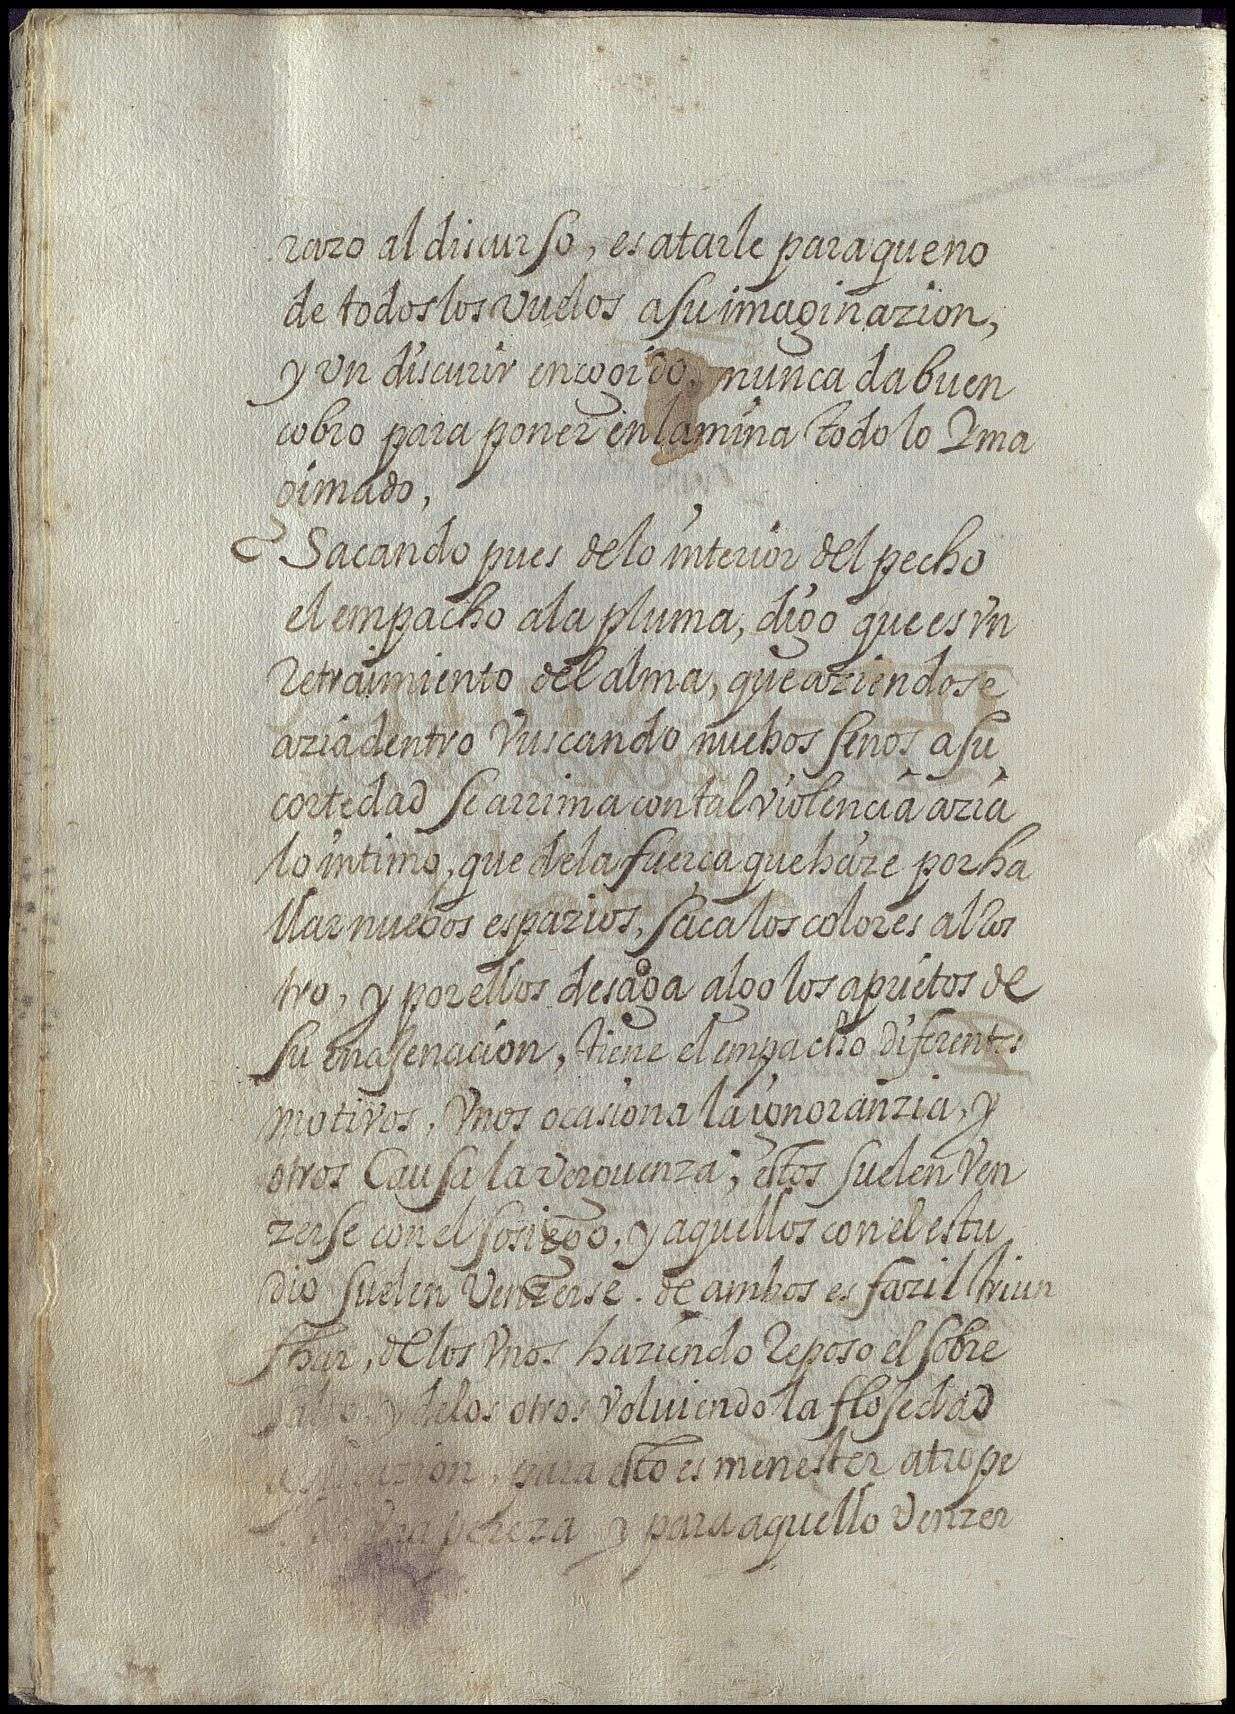 razo al discurso, es atarle para que no
de todos los vuelos a su imaginazion,
y vn discurir encogido, nunca da buen
cobro para poner en lamina todo lo Ima
gimado,
Sacando pues de lo interior del pecho
el empacho a la pluma, digo que es vn
Retraimiento del alma, que aziendose
azia dentro Vuscando nuebos senos a su
cortedad se arrima con tal violencia azia
lo intimo, que de la fuerca que haze por ha
llar nuebos espazios, saca los colores al Ros
tro, y por ellos desaga algo los aprietos de
su enagenacion, tiene el empacho diferentes
motivos, Vnos ocasiona la ignoranzia, y
otros Causa la verguenza; estos suelen Ven
zerse con el sosiego, y aquellos con el estu
dio suelen Venzerse. de ambos es fazil triun
fhar, de los Vnos haziendo Reposo el sobre
salto, y de los otros volviendo la flosedad
para esto es menester atrope
pereza y para aquello Venzer